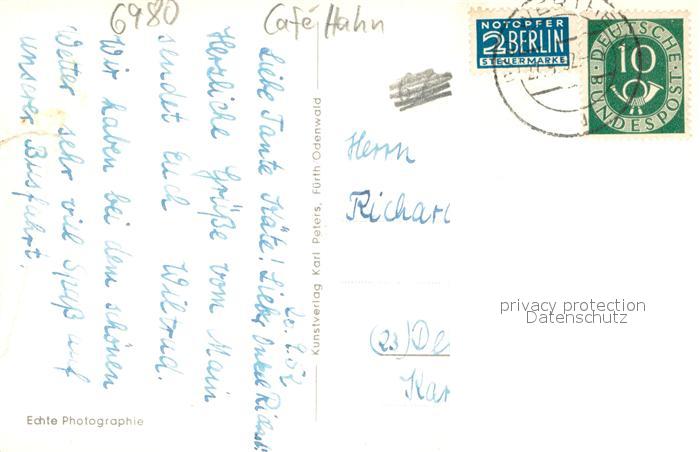 6980
Café Hahn
NOTOPFER
2 BERLIN
STEUERMARKE
DEUTSCHE
BUNDESPOST
10
20.9.52
Liebe Tante Käte! Lieber Onkel Richard!
Herzliche Grüße vom Main
sendet Euch Wiltrud.
Wir haben bei dem schönen
Wetter sehr viel Spaß auf
unserer Busfahrt.
Kunstverlag Karl Peters, Fürth Odenwald
Herrn
Richard
(23) De
Kar
privacy protection
Datenschutz
Echte Photographie